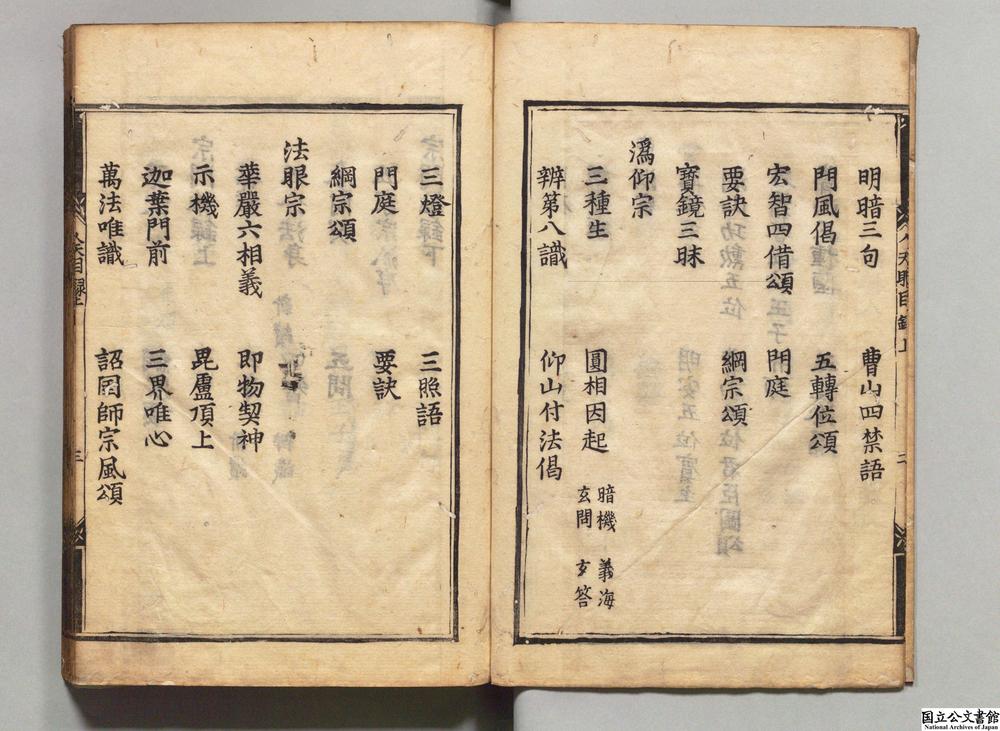 明暗三句 曹山四禁語
門風偈 五轉位頌
宏智四借頌 門庭
要訣 綱宗頌
寶鏡三昧
潙仰宗
三種生 圓相因起 暗機 義海 玄問 玄答
辨第八識 仰山付法偈
三燈 三照語
門庭 要訣
綱宗頌
法眼宗
華嚴六相義 即物契神
示機 毘盧頂上
迦葉門前 三界唯心
萬法唯識 詔囯師宗風頌
人天眼目錄上 二
人天目錄上 三
国立公文書館
National Archives of Japan